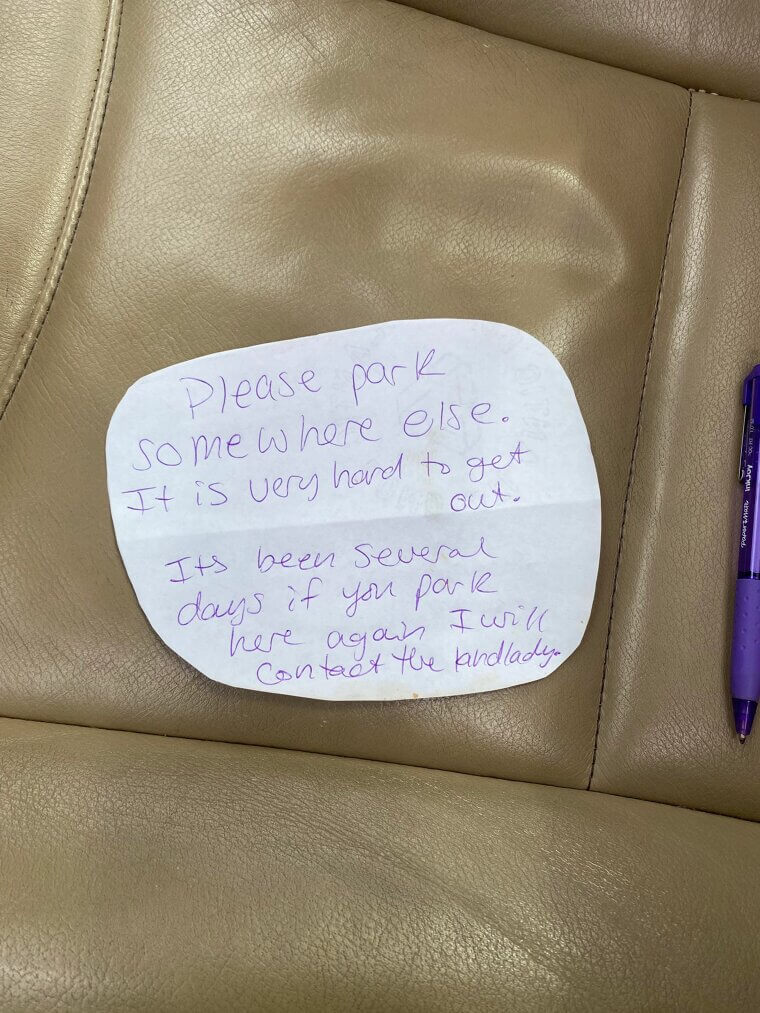 Please park
somewhere else.
It is very hard to get
out.
Its been several
days if you park
here again I will
contact the landlady.
PAPER MATE InkJoy